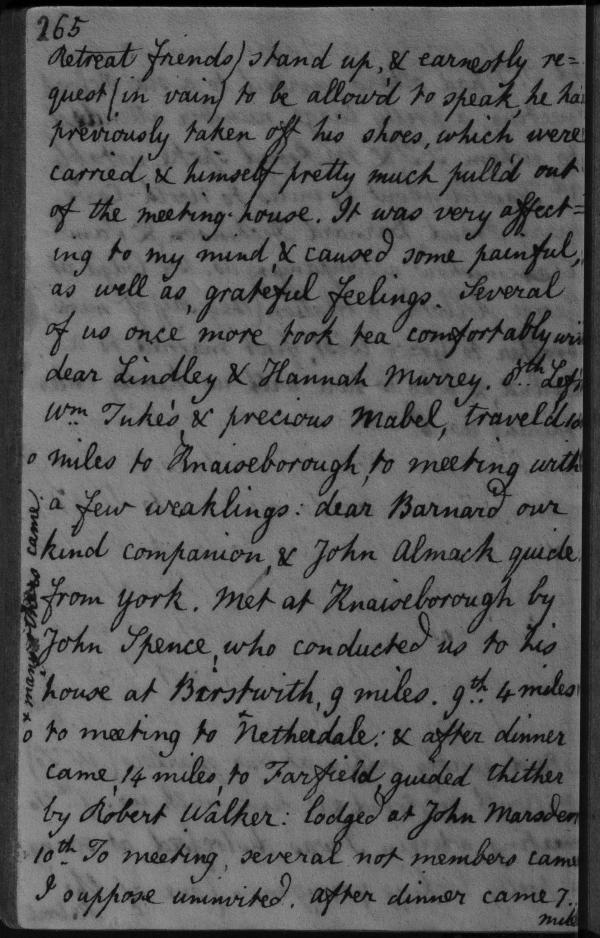 265
Retreat friends) stand up, & earnestly re=
quest (in vain) to be allow'd to speak, he ha
previously taken off his shoes, which were
carried, & himself pretty much pull'd out
of the meeting-house. It was very affect=
ing to my mind, & caused some painful,
as well as, grateful feelings. Several
of us once more took tea comfortably wi
dear Lindley & Hannah Murrey. 8th Left
Wm Tuke's, & precious Mabel, travel'd
o miles to Knaiseborough, to meeting with
a few weaklings: dear Barnard our
kind companion, & John Almack guide
from York. Met at Knaiseborough by
John Spence, who conducted us to his
house at Birstwith, 9 miles. 9th 4 miles
o to meeting to Netherdale: & after dinner
came, 14 miles, to Farfield, guided thither
by Robert Walker: lodged at John Marsden
10th To meeting, several not members came
I suppose uninvited. after dinner came 7.
mile
& many others came